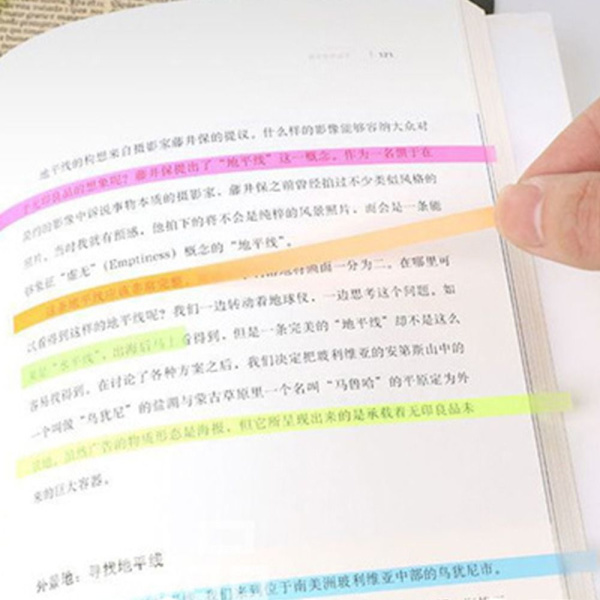 121
地平线的构想来自摄影家藤井保的提议。什么样的影像能够容纳大众对
于无印良品的想象呢？藤井保提出了“地平线”这一概念。作为一名惯于在
简约的影像中诉说事物本质的摄影家，藤井保之前曾经拍过不少类似风格的
照片。当时我就有预感，他拍下的将不会是纯粹的风景照片，而会是一条能
够象征“虚无”（Emptiness）概念的“地平线”。
这条地平线应该非常完整，地将画面一分为二。在哪里可
以看得到这样的地平线呢？我们一边转动着地球仪，一边思考这个问题。如
果是“水平线”，出海后马上看得到，但是一条完美的“地平线”却不是这么
容易找得到，在讨论了各种方案之后，我们决定把玻利维亚的安第斯山中的
一个叫做“乌犹尼”的盐湖与蒙古草原里一个名叫“马鲁哈”的平原定为外
景地。虽然广告的物质形态是海报，但它所呈现出来的是承载着无印良品未
来的巨大容器。
外景地：寻找地平线
我们来到位于南美洲玻利维亚中部的乌犹尼市。